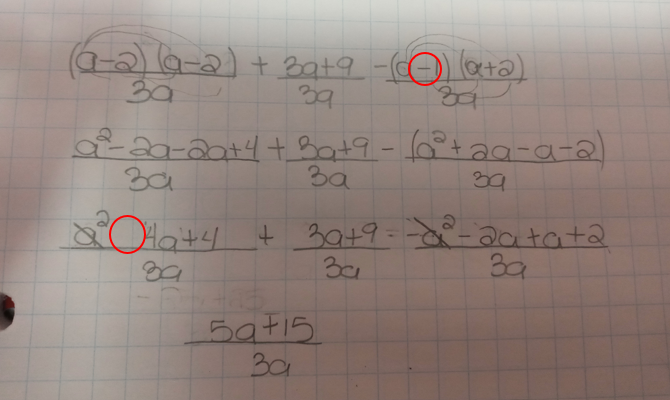 (a-2)(a-2)/3a + 3a+9/3a -(a-1)(a+2)/3a
a²-2a-2a+4/3a + 3a+9/3a - (a²+2a-a-2)/3a
a² 4a+4/3a + 3a+9/3a = -a²-2a+a+2/3a
5a+15/3a